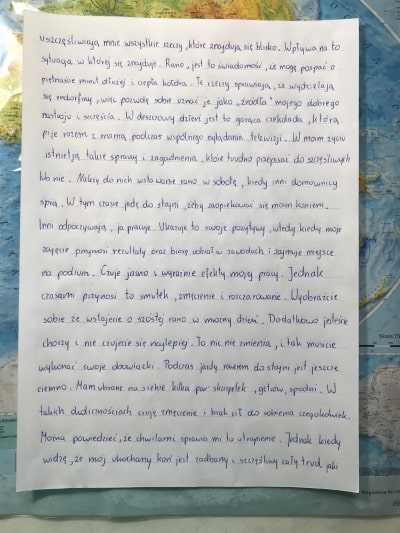 uszczęśliwiają mnie wszystkie rzeczy, które znajdują się blisko. Wpływa na to
sytuacja, w której się znajduję. Rano, jest to świadomość, że mogę pospać o
piętnaście minut dłużej i ciepła kołdra. Te rzeczy sprawiają, że wydzielają
się endorfiny, więc pozwolę sobie uznać je jako „źródła" mojego dobrego
nastroju i szczęścia. W deszczowy dzień jest to gorąca czekolada, którą
piję razem z mamą podczas wspólnego oglądania telewizji. W moim życiu
istnieją takie sprawy i zagadnienia, które trudno przepisać do szczęśliwych
lub nie. Należy do nich wstawanie rano w sobotę, kiedy inni domownicy
śpią. W tym czasie jadę do stajni, żeby zaopiekować się moim koniem.
Inni odpoczywają, ja pracuję. Ukazuje to swoje pozytywy, wtedy kiedy moje
zajęcie przynosi rezultaty oraz biorę udział w zawodach i zajmuję miejsce
na podium. Czuję jasno i wyraźnie efekty mojej pracy. Jednak
czasami przynosi to smutek, zmęczenie i rozczarowanie. Wyobraźcie
sobie, że wstajecie o szóstej rano w mroźny dzień. Dodatkowo jesteście
chorzy i nie czujecie się najlepiej. To nic nie zmienia, i tak musicie
wykonać swoje obowiązki. Podczas jazdy rowerem do stajni jest jeszcze
ciemno. Mam ubrane na siebie kilka par skarpetek, getrów, spodni. W
takich okolicznościach czuję zmęczenie i brak sił do robienia czegokolwiek.
Można powiedzieć, że chwilami sprawia mi to utrapienie. Jednak kiedy
widzę, że mój ukochany koń jest zadbany i szczęśliwy cały trud, jaki